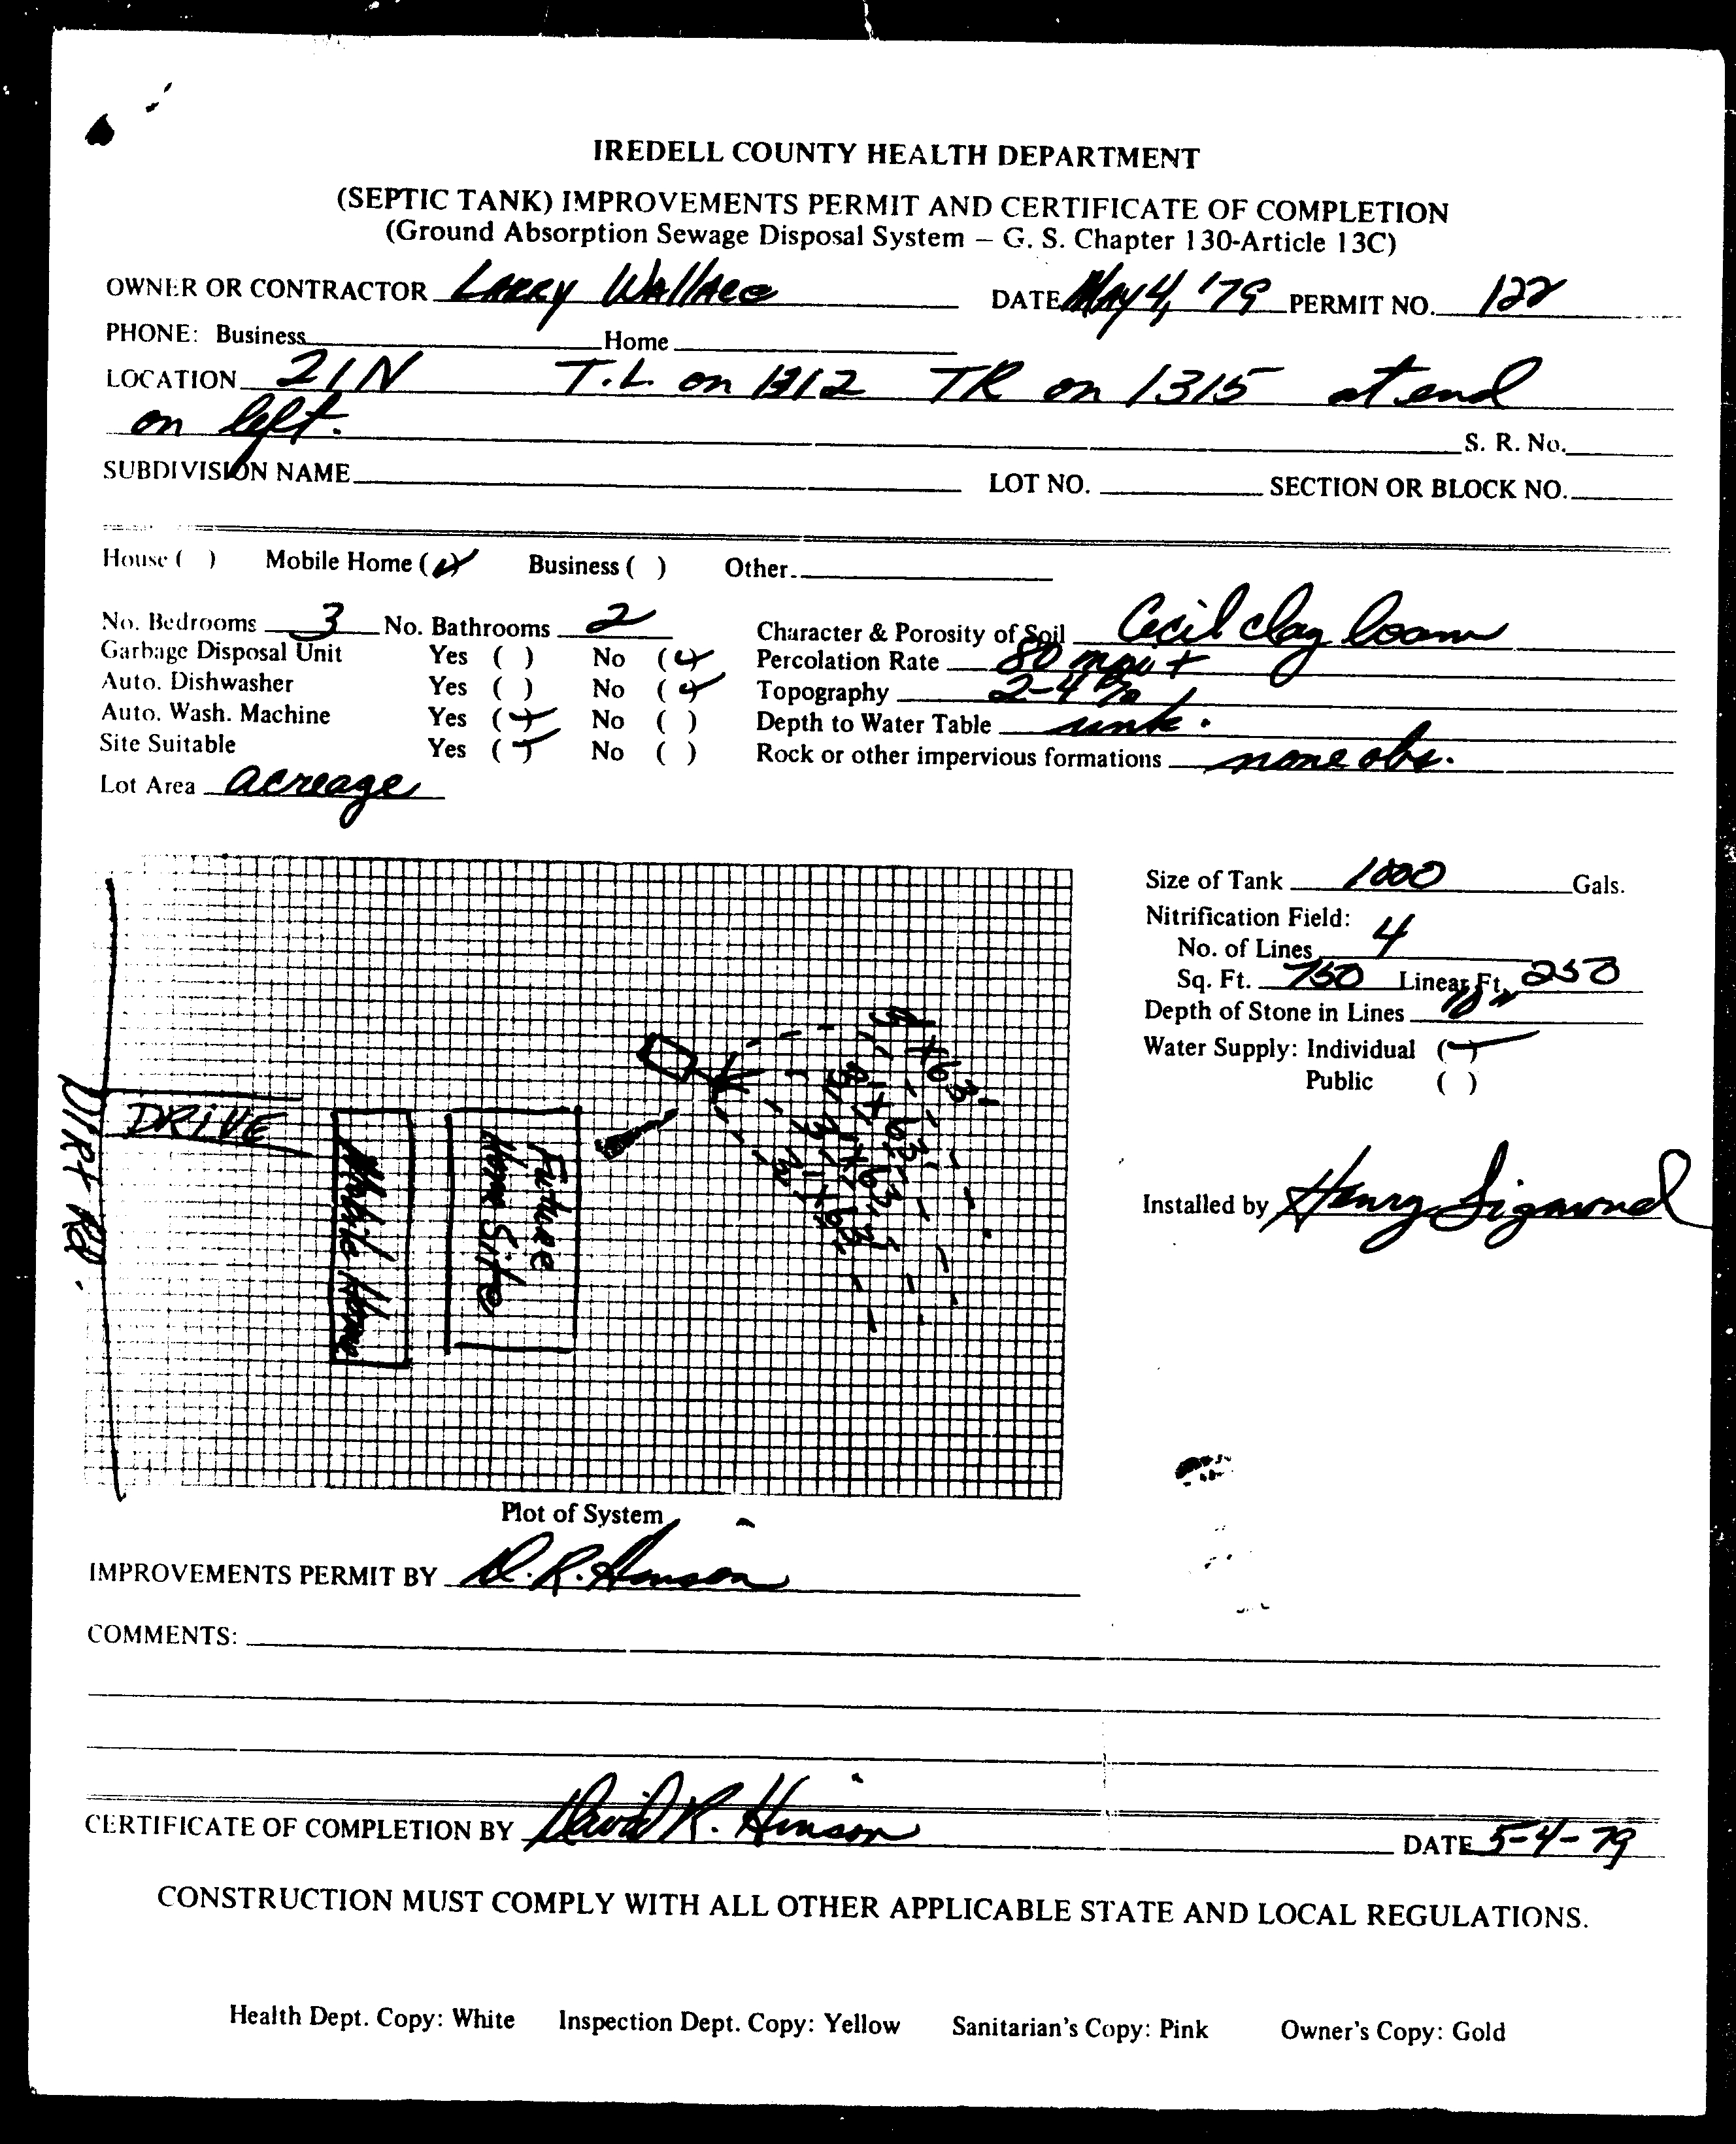 IREDELL COUNTY HEALTH DEPARTMENT
(SEPTIC TANK) IMPROVEMENTS PERMIT AND CERTIFICATE OF COMPLETION
(Ground Absorption Sewage Disposal System – G. S. Chapter 130-Article 13C)
OWNER OR CONTRACTOR Larry Wallace DATE May 4, '79 PERMIT NO. 122
PHONE: Business Home
LOCATION 21N T.L. on 1312 TR on 1315 at end
on left. S. R. No.
SUBDIVISION NAME LOT NO. SECTION OR BLOCK NO.
House ( ) Mobile Home (✓) Business ( ) Other
No. Bedrooms 3 No. Bathrooms 2 Character & Porosity of Soil Cecil clay loam
Garbage Disposal Unit Yes ( ) No (✓) Percolation Rate 80 mpi +
Auto. Dishwasher Yes ( ) No (✓) Topography 2-4%
Auto. Wash. Machine Yes (✓) No ( ) Depth to Water Table unk.
Site Suitable Yes (✓) No ( ) Rock or other impervious formations none obs.
Lot Area acreage
Size of Tank 1000 Gals.
Nitrification Field:
No. of Lines 4
Sq. Ft. 750 Linear Ft. 250
Depth of Stone in Lines 10"
Water Supply: Individual (✓)
Public ( )
DIRT RD.
DRIVE
Mobile Home
Future
Home Site
Installed by Henry Sigmond
Plot of System
IMPROVEMENTS PERMIT BY D. R. Hinson
COMMENTS:
CERTIFICATE OF COMPLETION BY David R. Hinson DATE 5-4-79
CONSTRUCTION MUST COMPLY WITH ALL OTHER APPLICABLE STATE AND LOCAL REGULATIONS.
Health Dept. Copy: White Inspection Dept. Copy: Yellow Sanitarian's Copy: Pink Owner's Copy: Gold